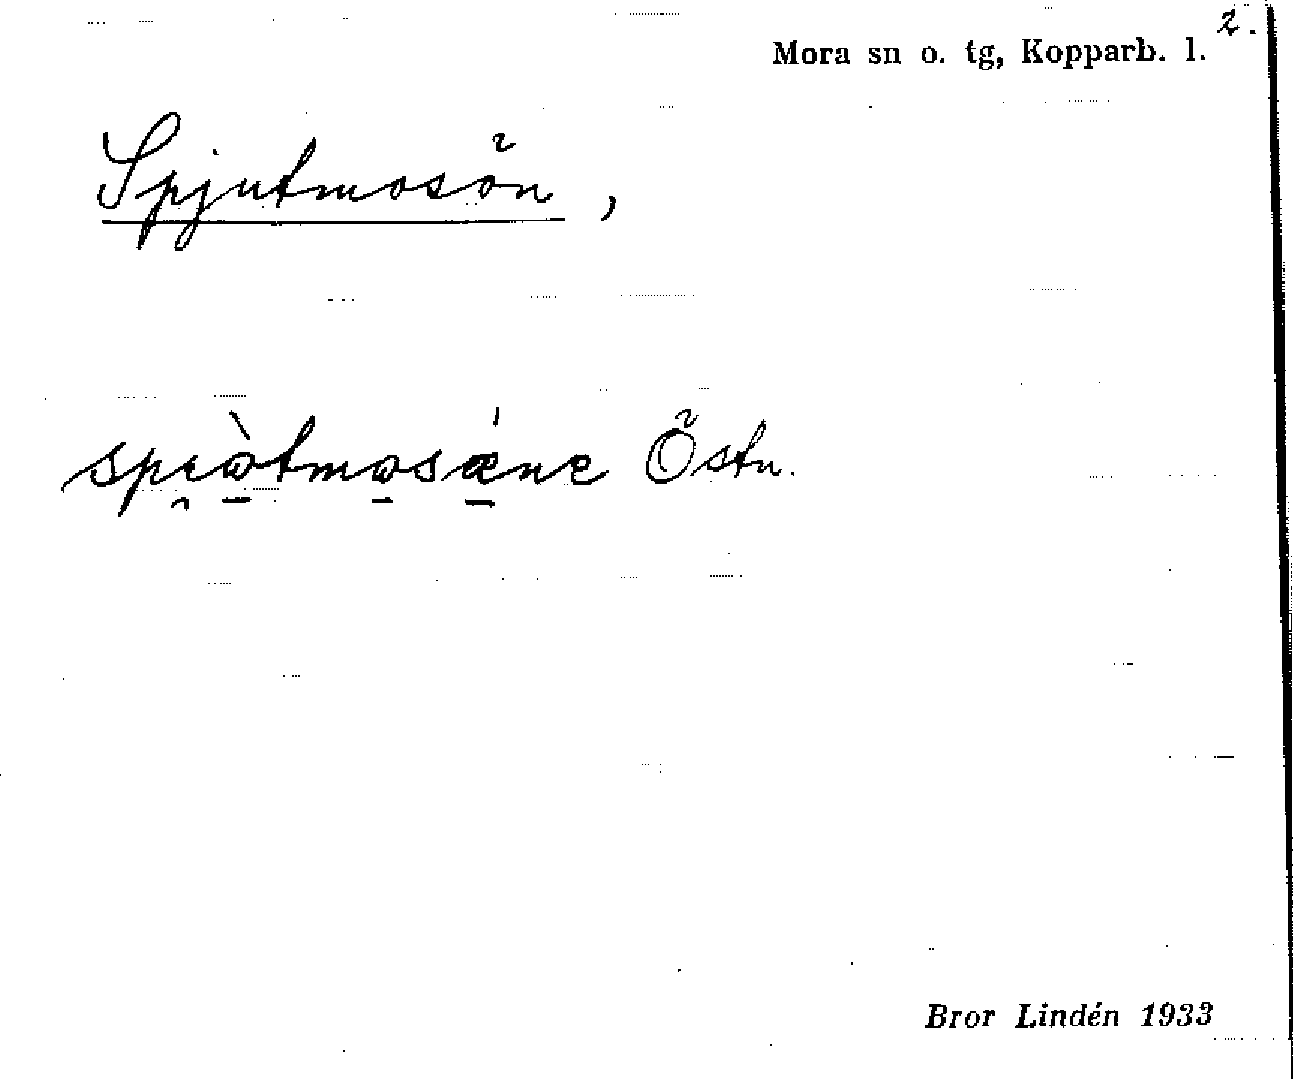 2.
Mora sn o. tg, Kopparb. l.
Spjutmosön,
Östn.
Bror Lindén 1933